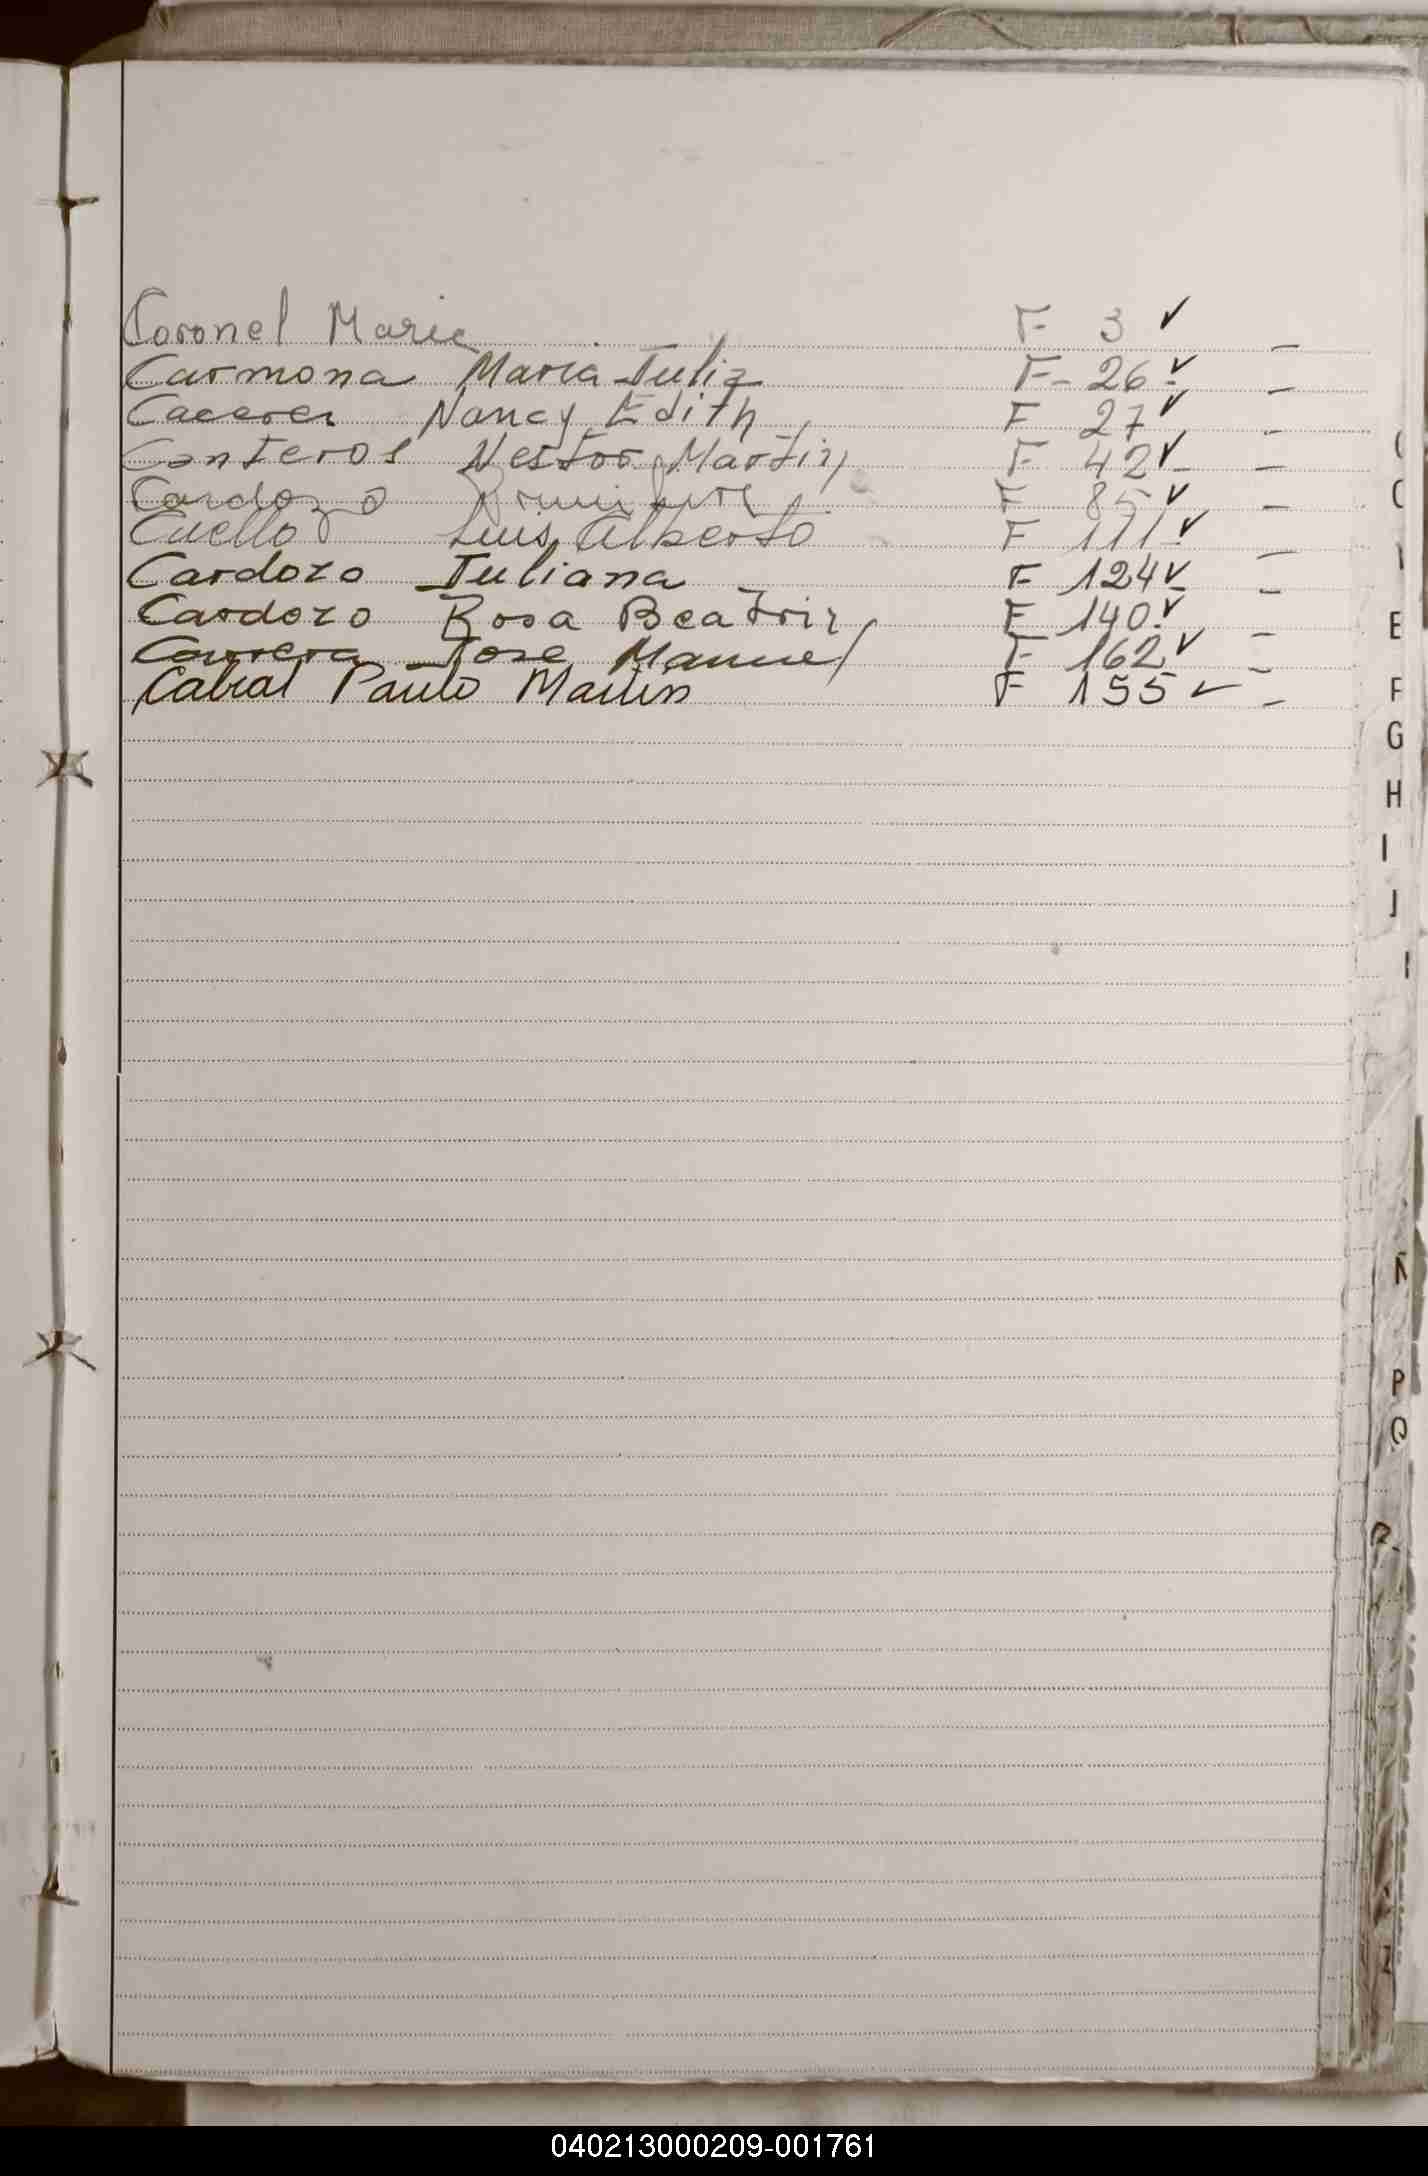 Coronel Marie F- 3 ✓ -
Carmona Maria Julia F- 26 ✓ -
Caceres Nancy Edith F 27 ✓ -
Canteros Nestor Martin F 42 ✓ -
Cardozo F 85 ✓ -
Cuello Luis Alberto F 111 ✓ -
Cardozo Juliana F 124 ✓ -
Cardozo Rosa Beatriz F 140 ✓ -
Carrera Jose Manuel F 162 ✓ -
Cabral Paulo Martin F 155 ✓ -
E
F
G
H
I
J
Ñ
P
Q
R
Z
040213000209-001761